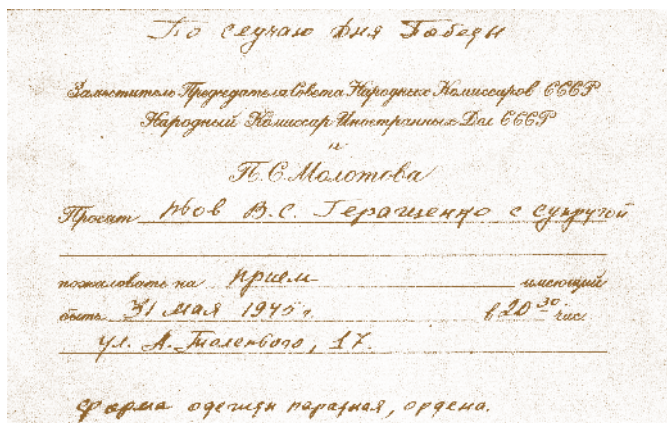 По случаю дня Победы
Заместитель Председателя Совета Народных Комиссаров СССР
Народный Комиссар Иностранных Дел СССР
и
П.С. Молотова
Просят В.С. Геращенко с супругой
пожаловать на прием имеющий
быть 31 мая 1945 г. в 20 30 час
ул. А. Толстого, 17.
форма одежды парадная, ордена.